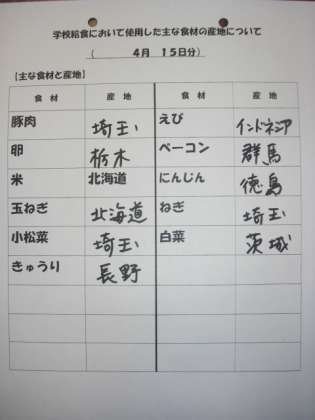 学校給食において使用した主な食材の産地について
( 4月 15日分)
【主な食材と産地】
食 材 産 地 食 材 産 地
豚肉 埼玉 えび インドネシア
卵 栃木 ベーコン 群馬
米 北海道 にんじん 徳島
玉ねぎ 北海道 ねぎ 埼玉
小松菜 埼玉 白菜 茨城
きゅうり 長野